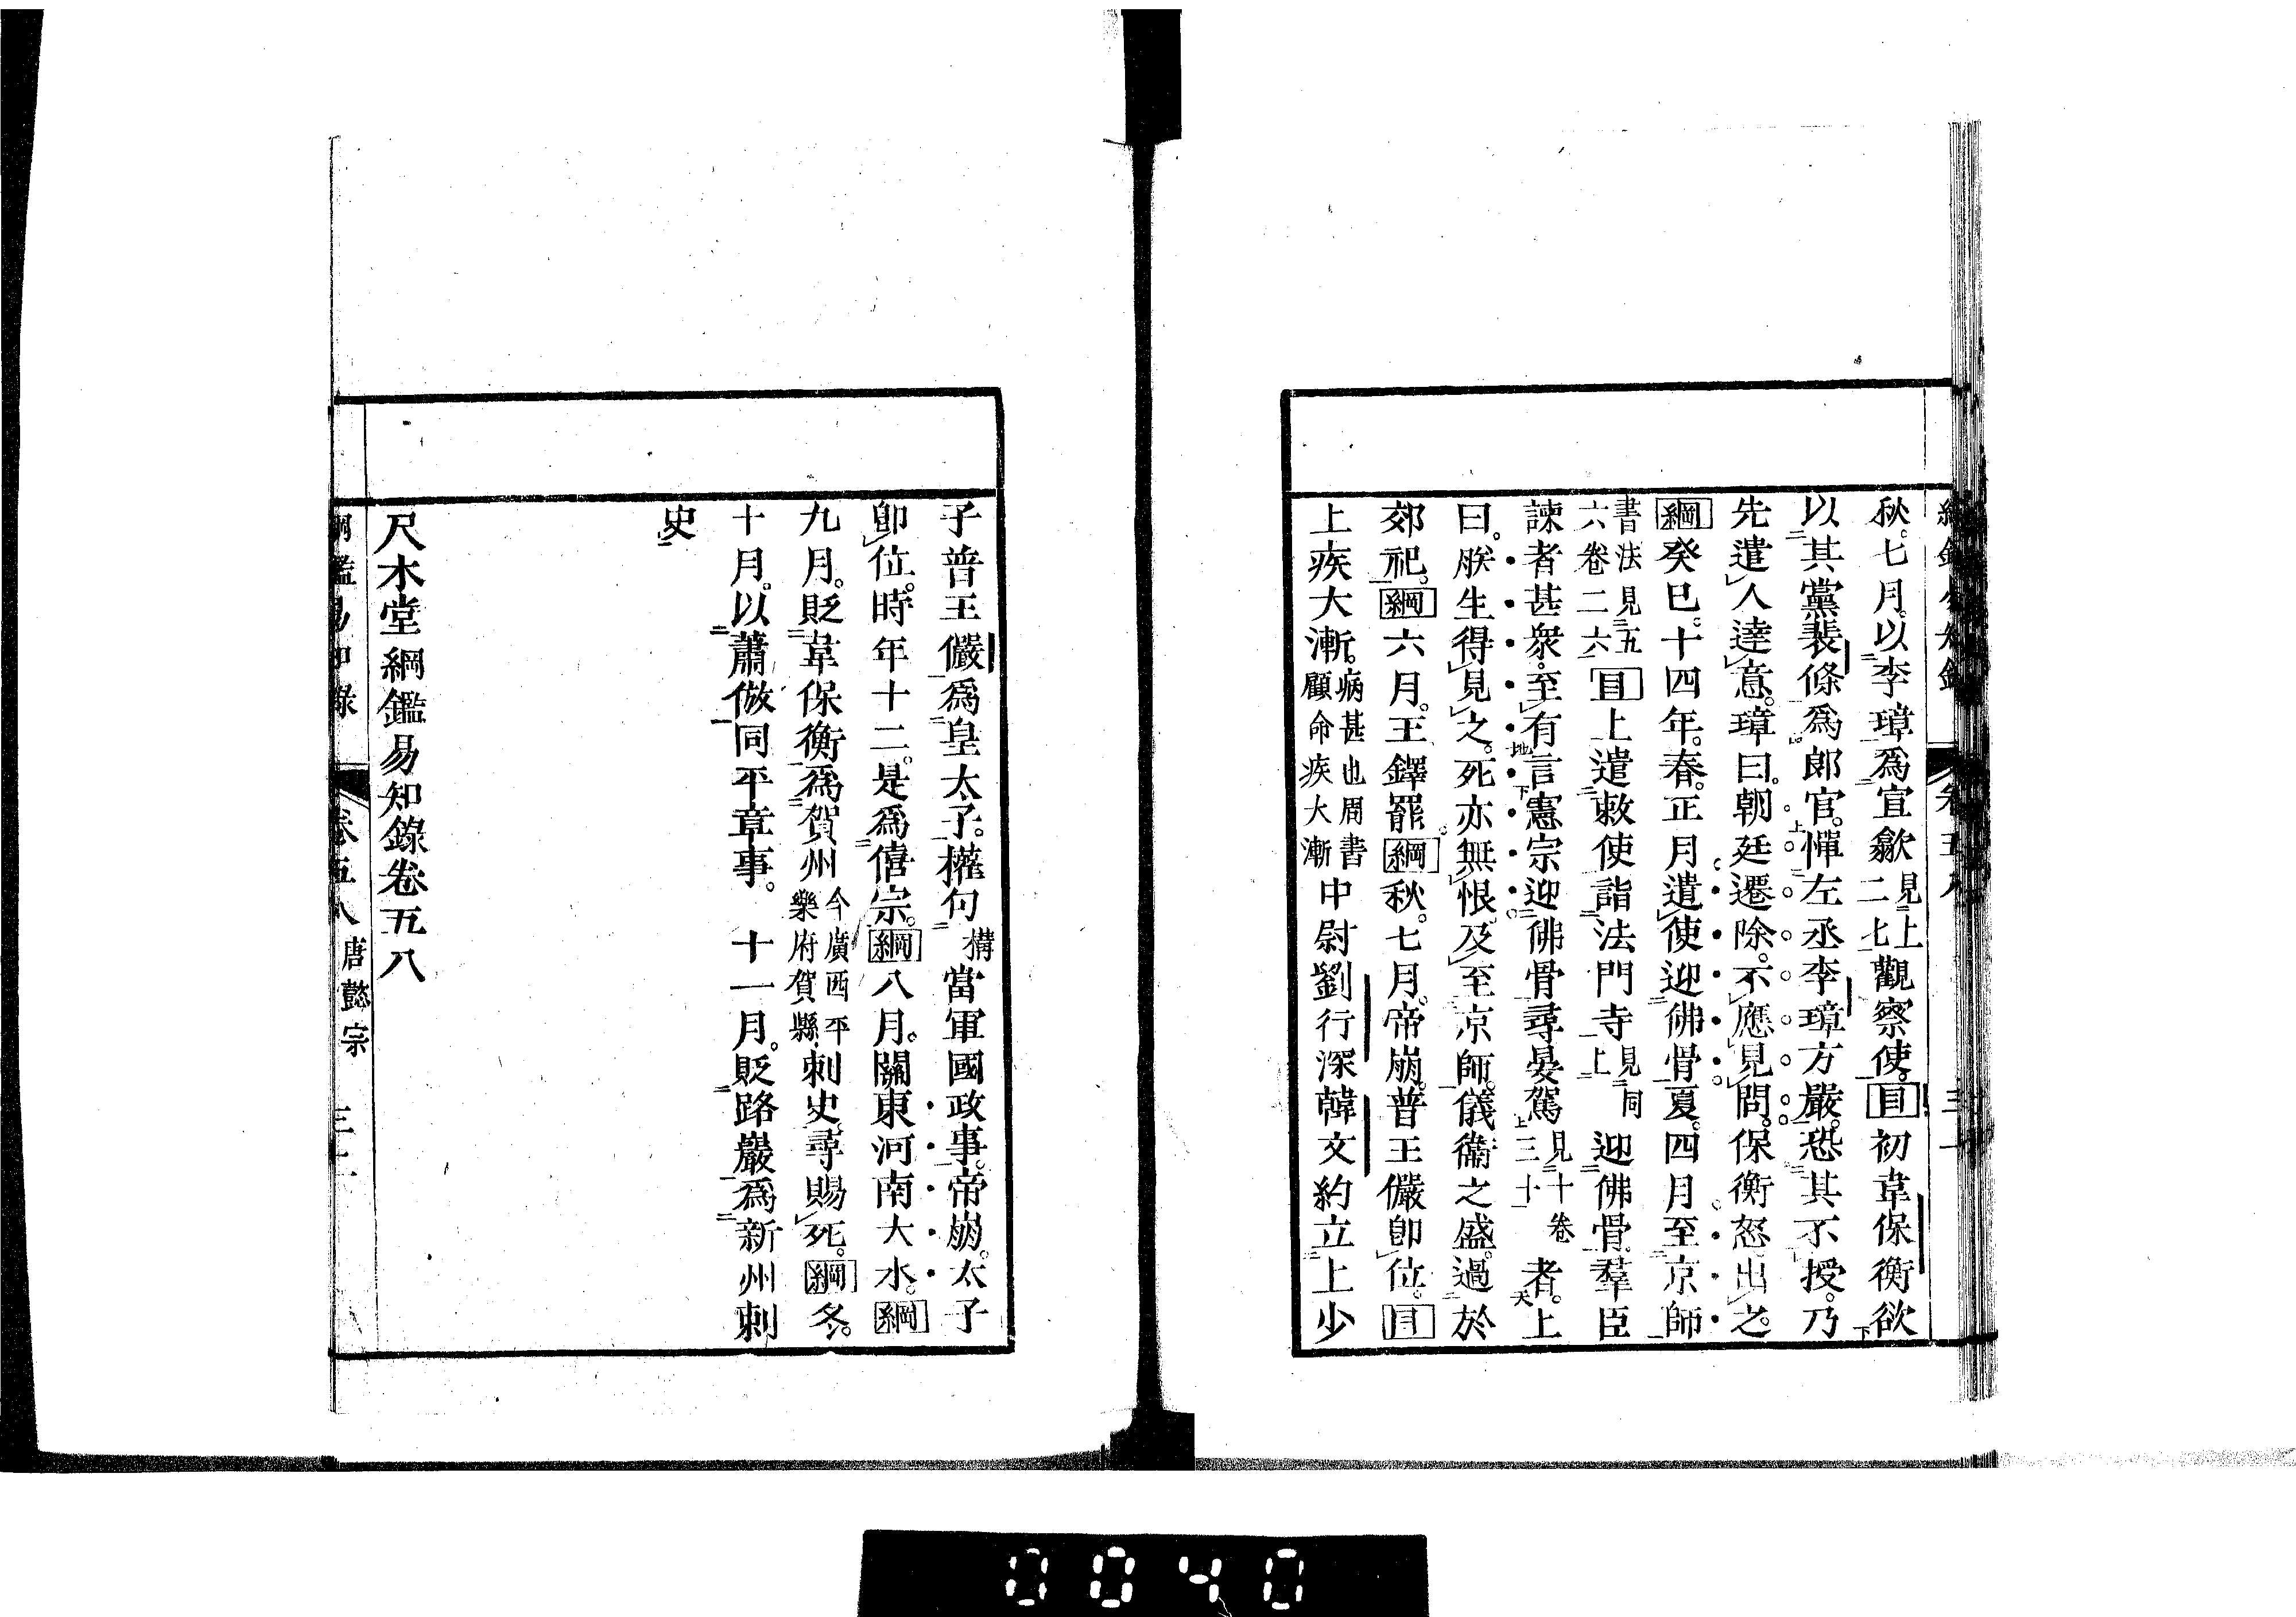 秋。七月。以李璋爲宣歙見上二七觀察使。目初韋保衡欲
以其黨裴條爲郎官。憚左丞李璋方嚴。恐其不授。乃
先遣人達意。璋曰。朝廷遷除。不應見問。保衡怒出之。
綱癸巳。十四年。春。正月遣使迎佛骨。夏。四月至京師
書法見五六卷二六目上遣敕使詣法門寺見同上迎佛骨。羣臣
諫者甚衆。至有言憲宗迎佛骨尋晏駕見十卷三十者。上
曰。朕生得見之。死亦無恨。及至京師。儀衞之盛。過於
郊祀。綱六月。王鐸罷。綱秋。七月。帝崩。普王儼卽位。目
上疾大漸。病甚也周書顧命疾大漸中尉劉行深韓文約立上少
子普王儼爲皇太子。權句構當軍國政事。帝崩。太子
卽位。時年十二。是爲僖宗。綱八月。關東河南大水。綱
九月。貶韋保衡爲賀州今廣西平樂府賀縣刺史。尋賜死。綱冬。
十月。以蕭倣同平章事。十一月。貶路巖爲新州刺
史
尺木堂綱鑑易知錄卷五八
綱鑑易知錄 卷五八 唐懿宗
0040